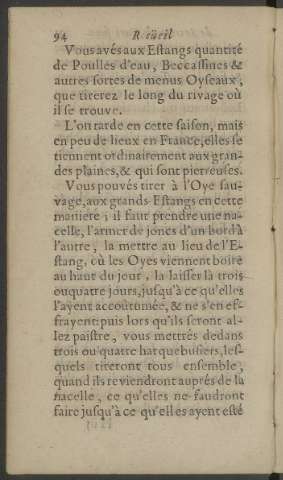 94 Recüeil
Vous avés aux Estangs quantité
de Poulles d'eau, Beccassines &
autres sortes de menus Oyseaux,
que tirerez le long du rivage où
il se trouve.
L'on tarde en cette saison, mais
en peu de lieux en France, elles se
tiennent ordinairement aux gran-
des plaines, & qui sont pierreuses.
Vous pouvés tirer à l'Oye sau-
vage, aux grands Estangs en cette
maniere; il faut prendre une na-
celle, l'armer de joncs d'un bord à
l'autre; la mettre au lieu de l'E-
stang, où les Oyes viennent boire
au haut du jour, la laisser là trois
ou quatre jours, jusqu'à ce qu'elles
l'ayent accoûtumée, & ne s'en ef-
frayent: puis lors qu'ils seront al-
lez paistre, vous mettrés dedans
trois ou quatre harquebusiers, les-
quels tireront tous ensemble,
quand ils reviendront auprés de la
nacelle, ce qu'elles ne faudront
faire jusqu'à ce qu'elles ayent esté